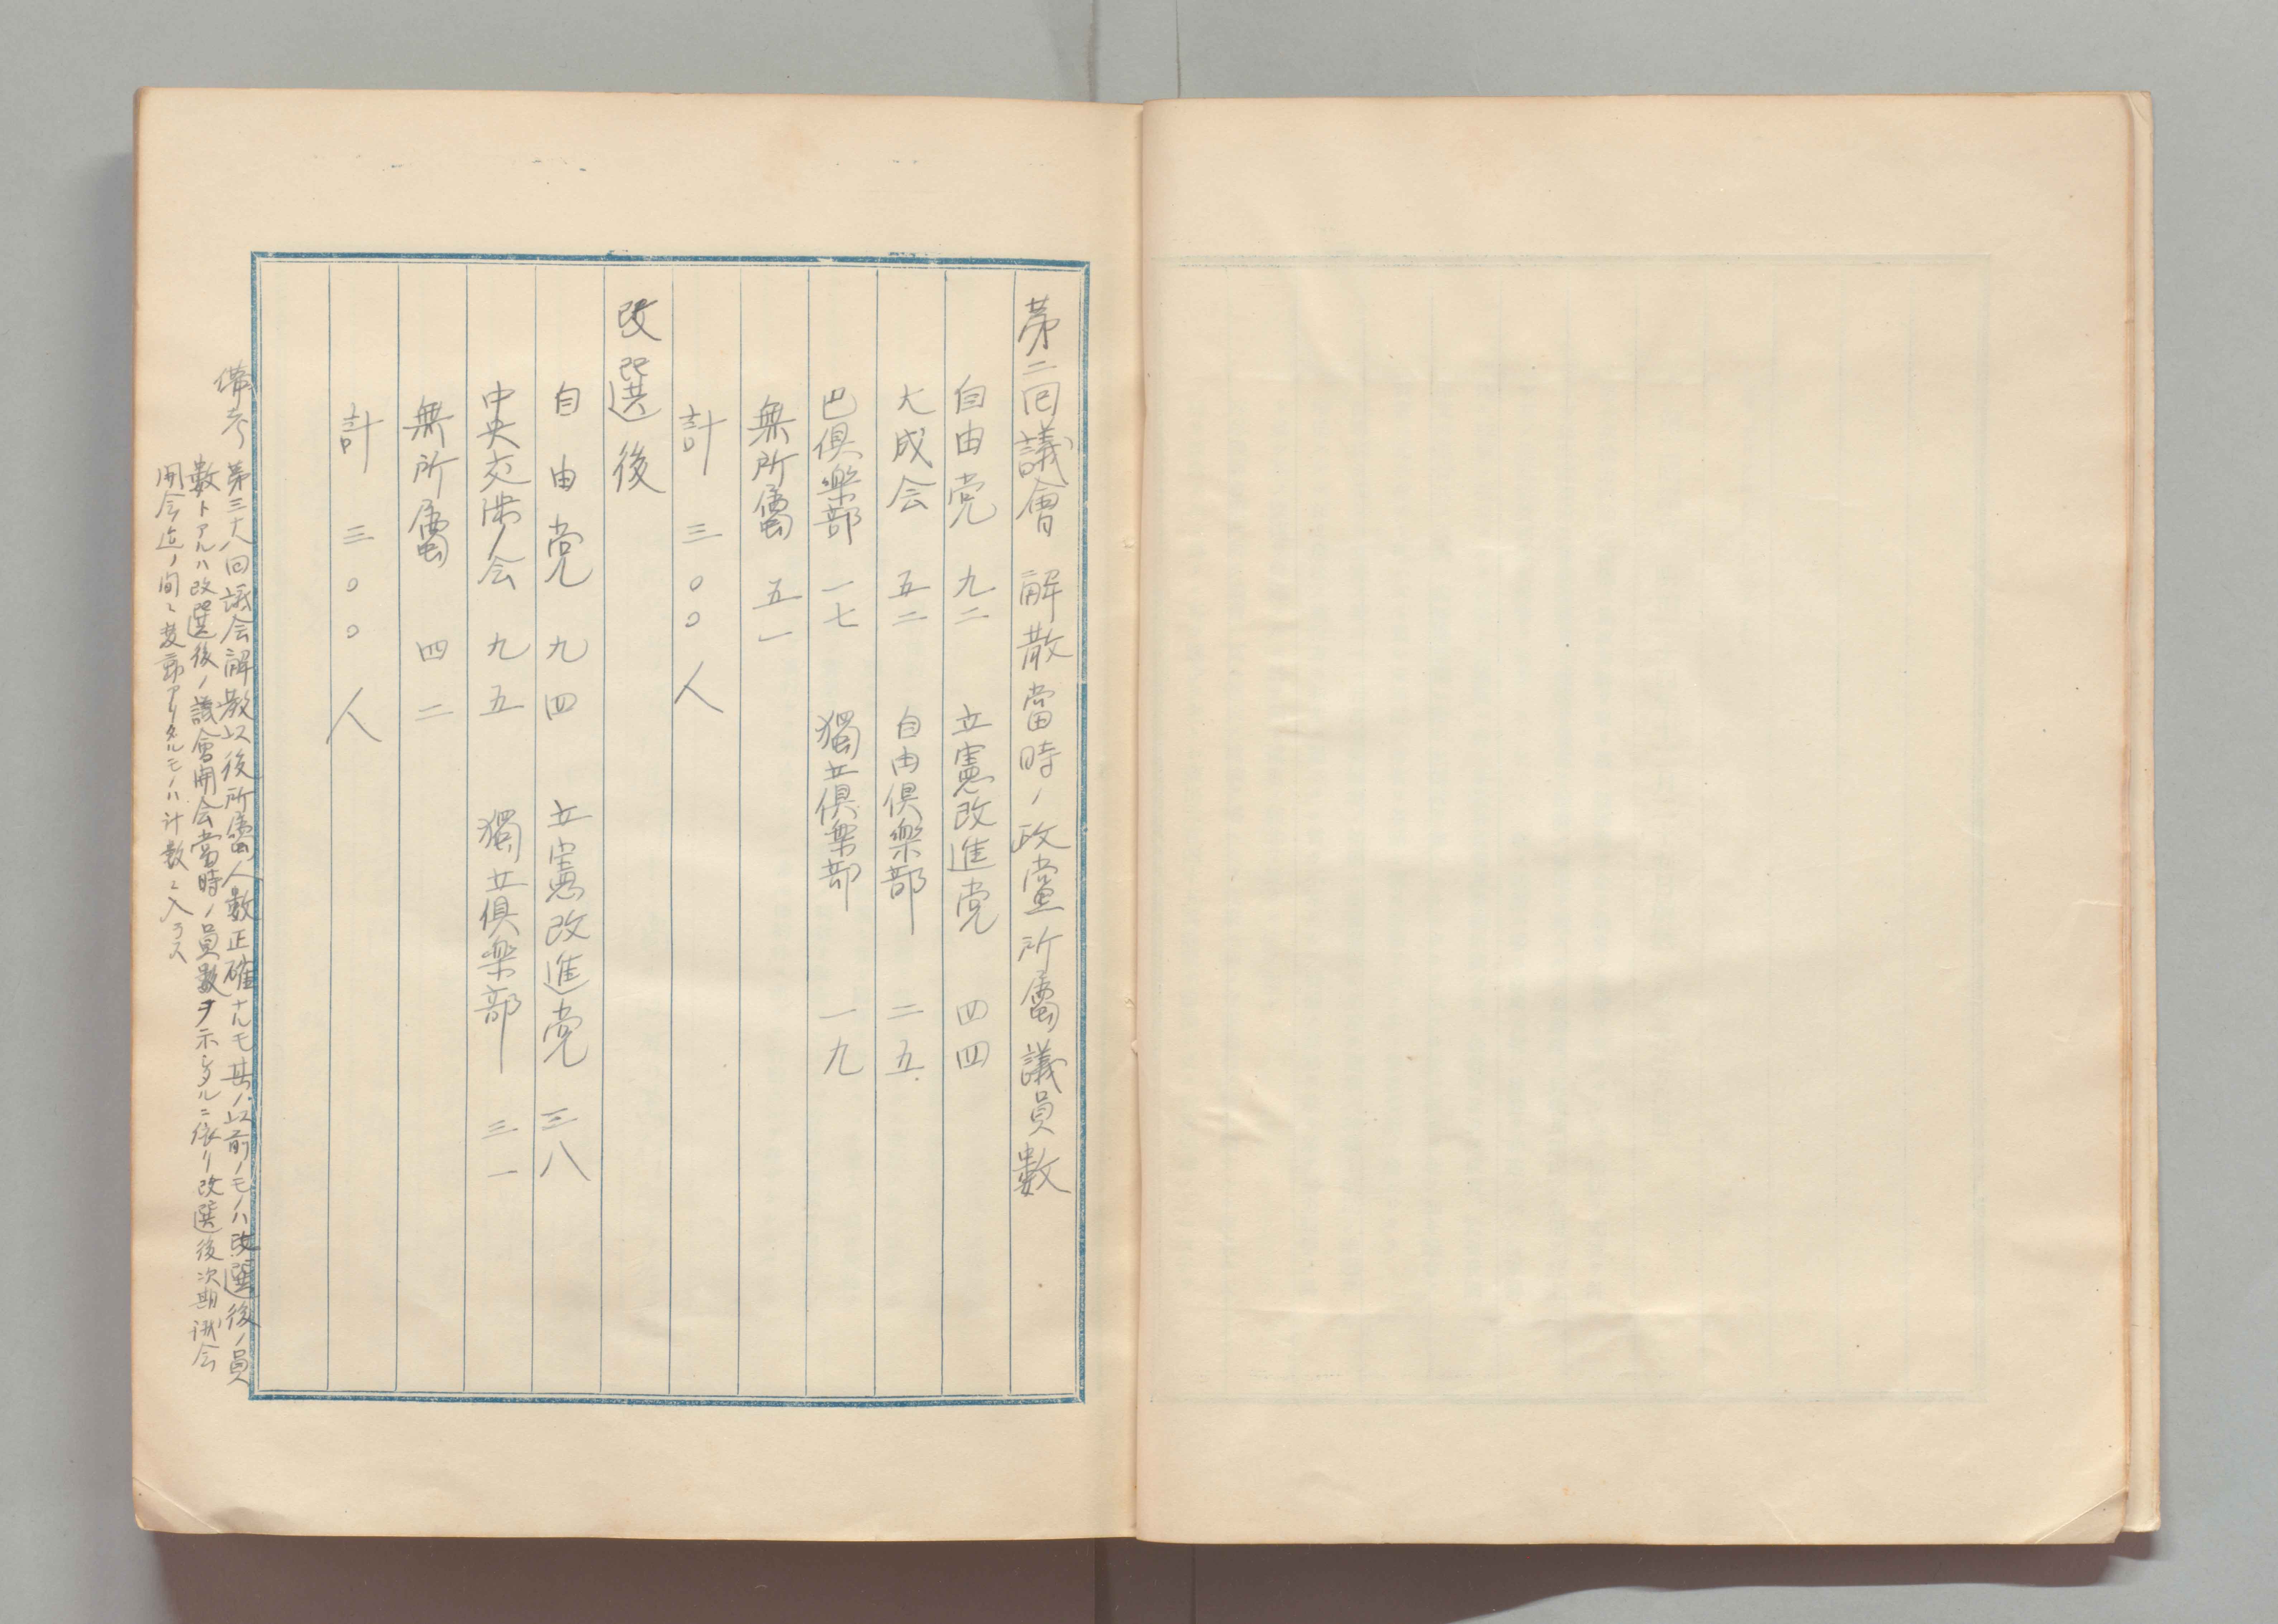 第二回議會解散當時ノ政黨所屬議員數
自由党 九二 立憲改進党 四四
大成会 五二 自由倶楽部 二五
巴倶楽部 一七 獨立倶楽部 一九
無所屬 五一
計 三〇〇人
改選後
自由党 九四 立憲改進党 三八
中央交渉会 九五 獨立倶楽部 三一
無所屬 四二
計 三〇〇人
備考 第三十八回議会解散以後所屬人數正確ナルモ其ノ以前ノモノハ改選後ノ員
數トアルハ改選後ノ議會開会當時ノ員數ヲ示シタルニ依リ改選後次期議会
開会迄ノ間ニ変動アリタルモノハ計数ニ入ラス